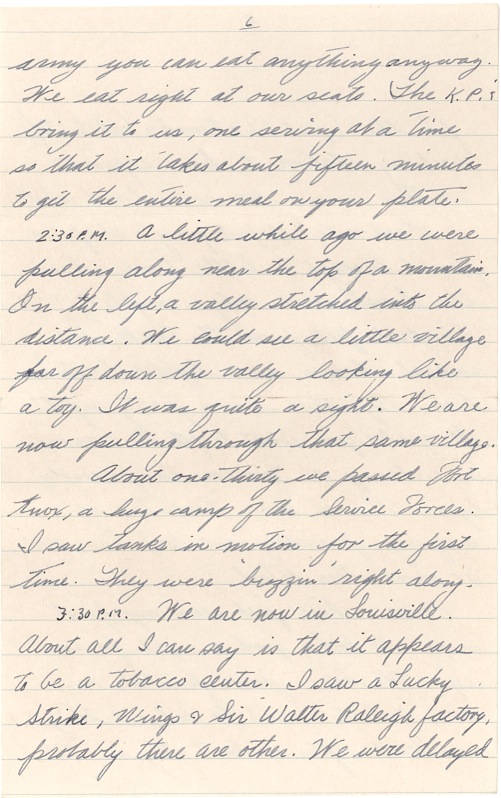 6
army you can eat anything anyway.
We eat right at our seats. The K.P.'s
bring it to us, one serving at a time
so that it takes about fifteen minutes
to get the entire meal on your plate.
2:30 P.M. A little while ago we were
pulling along near the top of a mountain.
On the left, a valley stretched into the
distance. We could see a little village
far off down the valley looking like
a toy. It was quite a sight. We are
now pulling through that same village.
About one-thirty we passed Fort
Knox, a huge camp of the Service Forces.
I saw tanks in motion for the first
time. They were 'buzzin' right along.
3:30 P.M. We are now in Louisville.
About all I can say is that it appears
to be a tobacco center. I saw a Lucky
Strike, Wings & Sir Walter Raleigh factory,
probably there are other. We were delayed